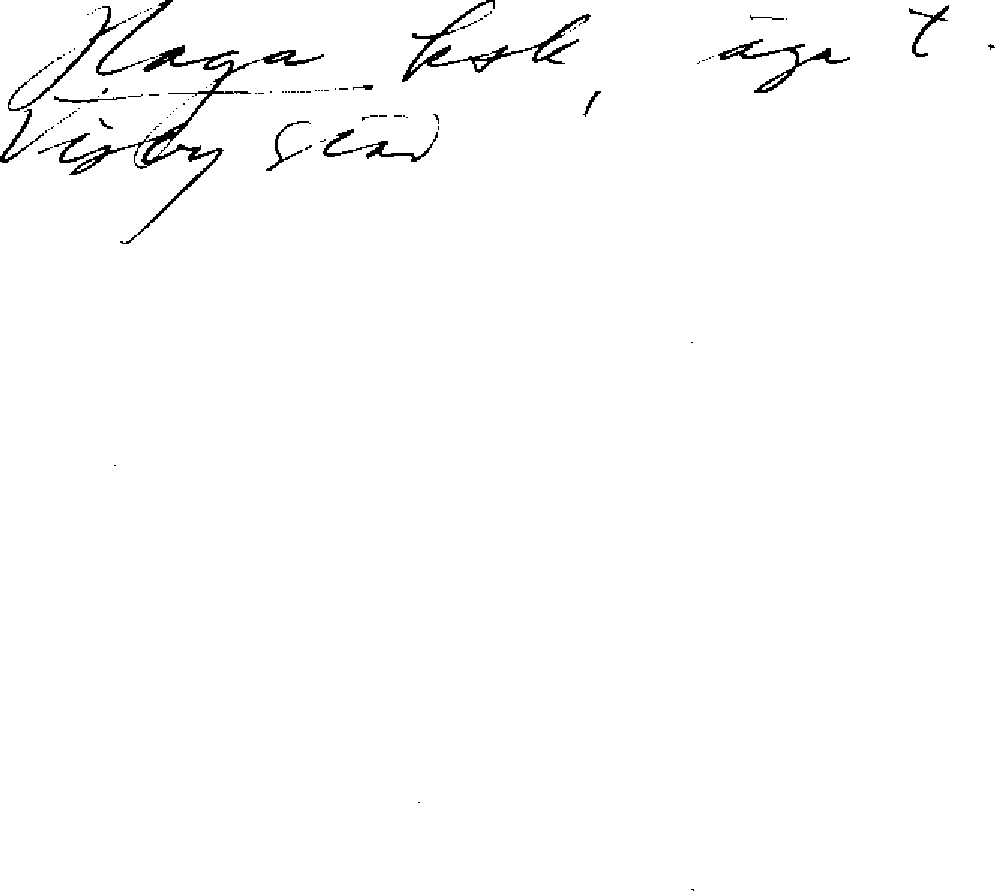 Haga kok, äga t.
Visby stad